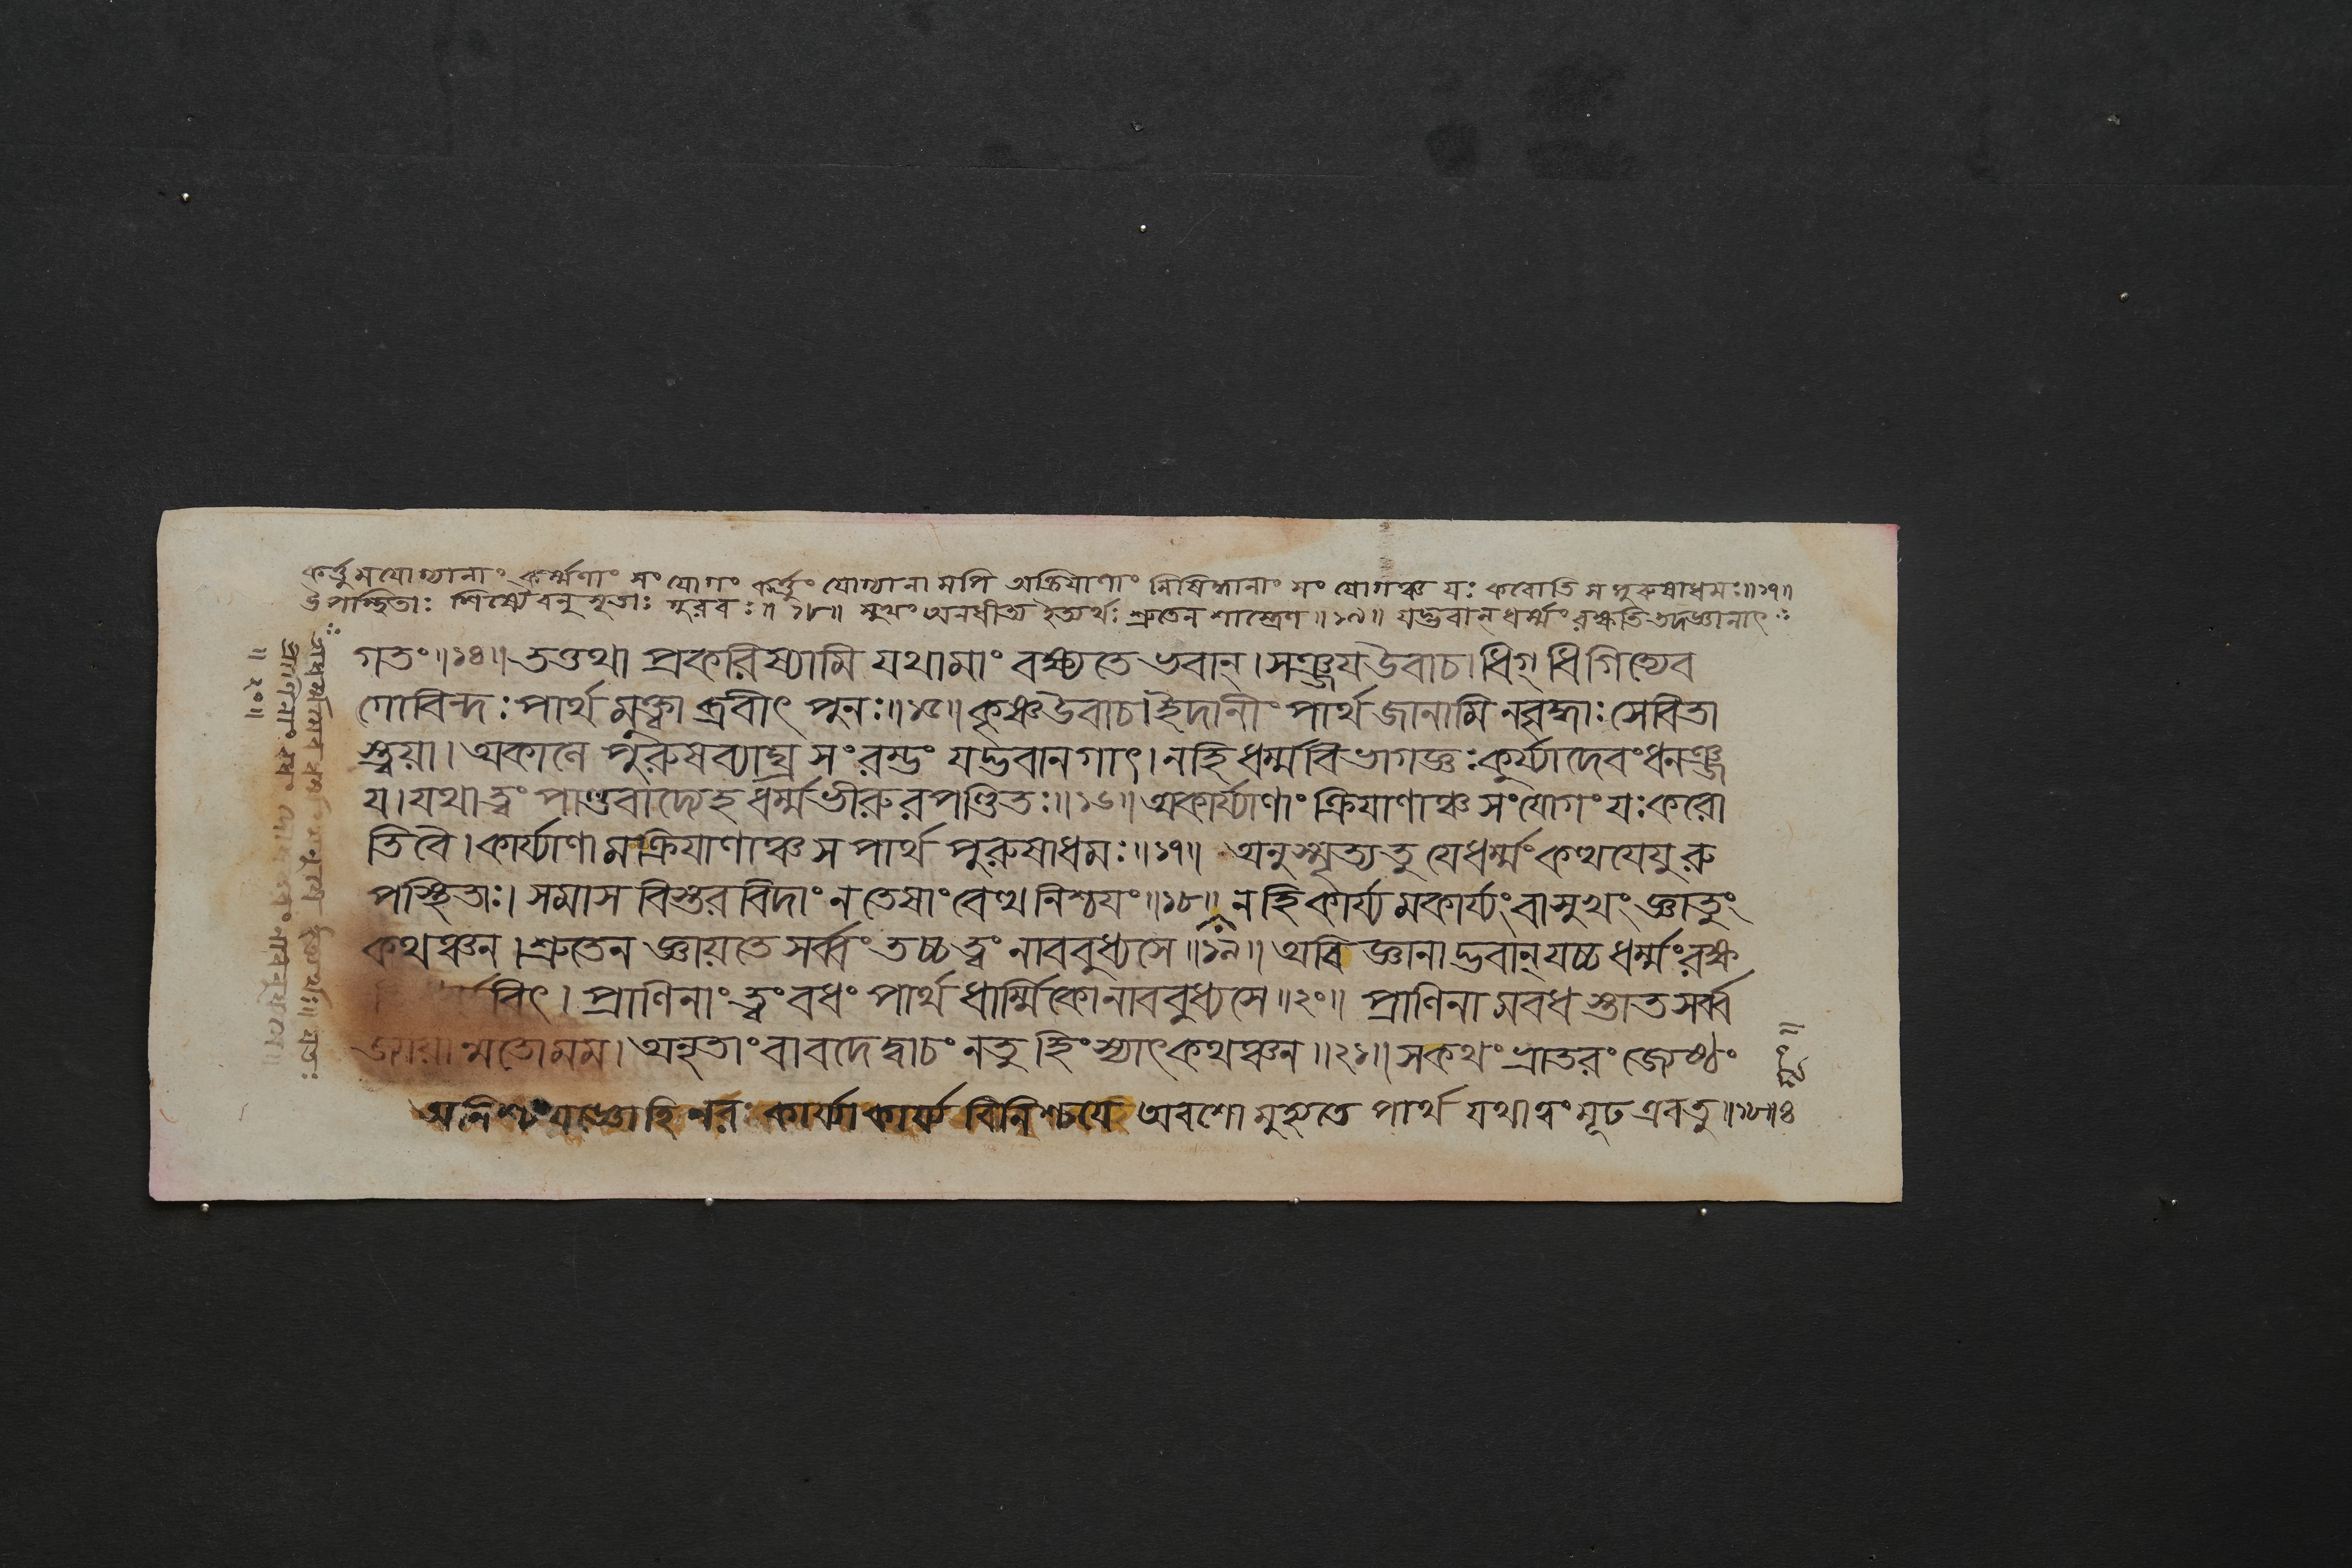 কর্ত্তুমযোগ্যানাং কর্ম্মণাং সংযোগং কর্ত্তুং যোগ্যানামপি অক্রিয়াণাং নিষিদ্ধানাং সংযোগঞ্চ যঃ করোতি স পুরুষাধমঃ॥১৭॥
উপস্থিতাঃ শিষ্যৈরনুসৃতাঃ গুরবঃ॥১৮॥ সুখং অনধীত্য ইত্যর্থঃ শ্রুতেন শাস্ত্রেণ॥১৯॥ যদ্ভবান্ ধর্ম্মং রক্ষতি তদজ্ঞানাৎ
গতং॥১৪॥ তত্তথা প্রকরিষ্যামি যথামাং বক্ষ্যতে ভবান্। সঞ্জয়উবাচ। ধিগ্ ধিগিত্যেব
গোবিন্দঃ পার্থমুক্ত্বাব্রবীৎ পুনঃ॥১৫॥ কৃষ্ণউবাচ। ইদানীং পার্থ জানামি নবৃদ্ধাঃ সেবিতা
স্ত্বয়া। অকালে পুরুষব্যাঘ্র সংরম্ভং যদ্ভবানগাৎ। নহি ধর্ম্মবিভাগজ্ঞঃ কুর্য্যাদেবংধনঞ্জ
য়। যথা ত্বং পাণ্ডবাদ্যেহ ধর্ম্মভীরুরপণ্ডিতঃ॥১৬॥ অকার্য্যাণাং ক্রিয়াণাঞ্চ সংযোগং যঃ করো
তিবৈ। কার্য্যাণামক্রিয়াণাঞ্চ স পার্থ পুরুষাধমঃ॥১৭॥ অনুসৃত্যতু যেধর্ম্মং কথয়েয়ুরু
পস্থিতাঃ। সমাসবিস্তরবিদাং ন তেষাং বেত্থ নিশ্চয়ং॥১৮॥ নহি কার্য্যমকার্য্যং বা সুখং জ্ঞাতুং
কথঞ্চন। শ্রুতেন জ্ঞায়তে সর্ব্বং তচ্চ ত্বং নাববুধ্যসে॥১৯॥ অবিজ্ঞানাদ্ভবান্ যচ্চ ধর্ম্মং রক্ষ
বিৎ। প্রাণিনাং ত্বং বধং পার্থ ধার্ম্মিকোনাববুধ্যসে॥২০॥ প্রাণিনামবধস্তাত সর্ব্ব
জ্যায়ান্মতোমম। অনৃতাং বা বদেদ্বাচং নতু হিংস্যাৎ কথঞ্চন॥২১॥ সকথং ভ্রাতরং জ্যেষ্ঠং
অনিশ্চয়জ্ঞোহি নরঃ কার্য্যাকার্য্য বিনিশ্চয়ে অবশো মুহ্যতে পার্থ যথাত্বং মূঢ এবতু॥১৮॥৪